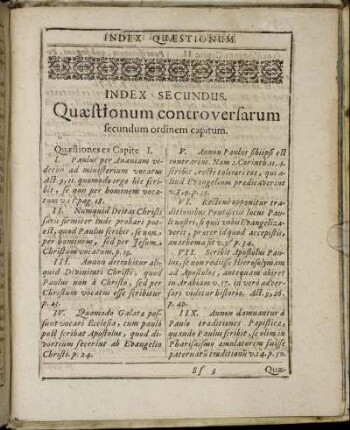 INDEX QUÆSTIONUM
INDEX SECUNDUS.
Quæstionum controversarum
secundum ordinem capitum.
Quæstiones ex Capite I.
I. Paulus per Ananiam vi-
detur ad ministerium vocatus
Act 9, 11. quomodo ergo hîc scri-
bit, se non per hominem voca-
tum v.1? pag. 18.
II. Numquid Deitas Christi
satis firmiter inde probari pot-
est, quod Paulus scribit, se non
per hominem, sed per Jesum
Christum vocatum, p. 19.
III. Annon derrahitur ali-
quid Divinitati Christi, quod
Paulus non à Christo, sed per
Christum vocatus esse scribitur
p. 23.
IV. Quomodo Galatæ pos-
sunt vocari Ecclesia, cum paulò
post scribat Apostolus, quod di-
vortium fecerint ab Evangelio
Christi. p. 24.
V. Annon Paulus sibiipsi est
contrarius. Nam 2. Corinth. 11. 4.
scribit, recte toleraretis, qui a-
liud Evangelium prædicaverint
v. 8. 9. p. 33.
VI. Rectené opponitur tra-
ditionibus Pontificiis locus Pau-
li nostri, si quis vobis Evangeliza-
verit, præter id quod accepistis,
anathema sit v. 9? p. 34.
VII. Scribit Apostolus Pau-
lus, se non rediisse Hierosolymam
ad Apostolos, antequam abiret
in Arabiam v. 17. id verò adver-
sari videtur historiæ. Act. 9, 26.
p. 40.
IIX. Annon damnantur à
Paulo traditiones Papisticæ,
quando Paulus scribit, se olim in
Pharisaismo æmulatorem fuisse
paternarũ traditionũ v. 14. p. 50.
Sſ 3
Quæ-